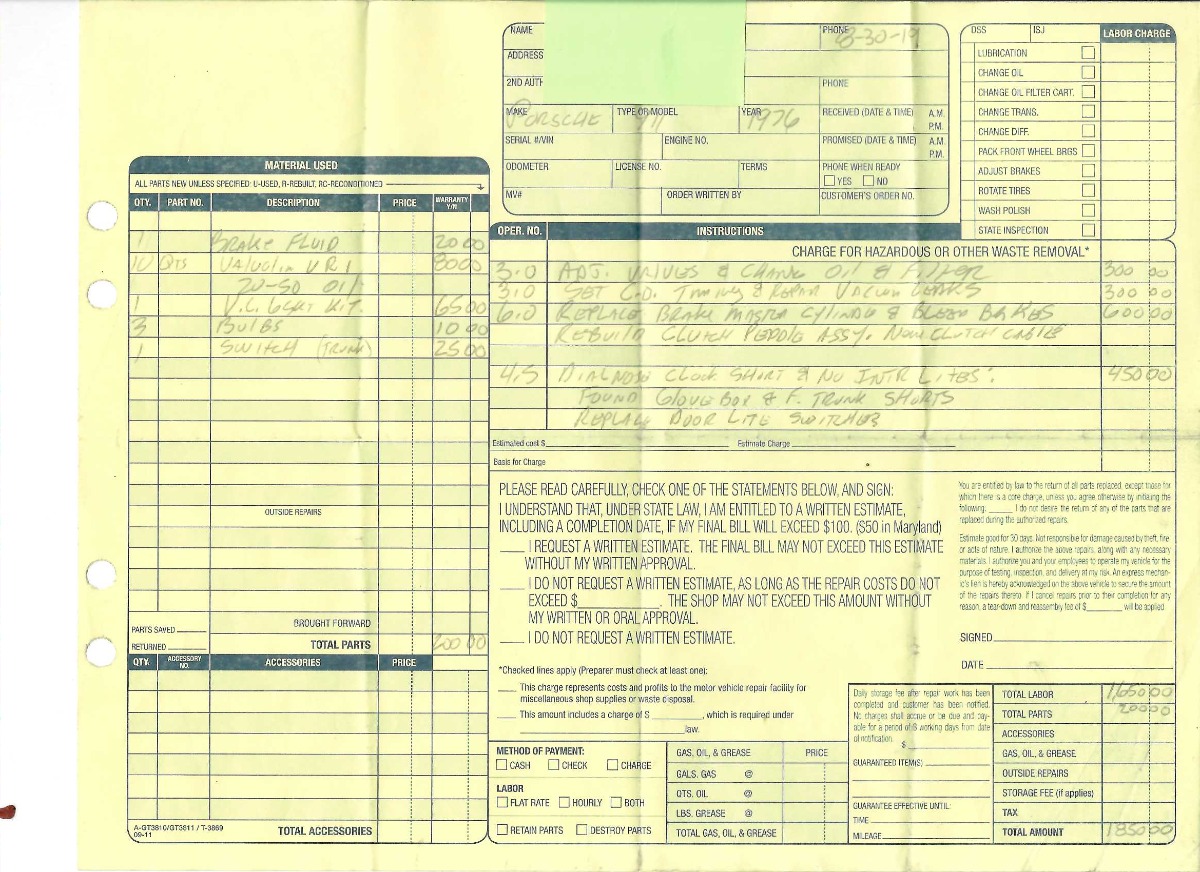 NAME PHONE 8-30-19
ADDRESS
2ND AUTH PHONE
MAKE PORSCHE TYPE OR MODEL 911 YEAR 1976 RECEIVED (DATE & TIME) A.M. P.M.
SERIAL #/VIN ENGINE NO. PROMISED (DATE & TIME) A.M. P.M.
ODOMETER LICENSE NO. TERMS PHONE WHEN READY
YES NO
MV# ORDER WRITTEN BY CUSTOMER'S ORDER NO.
DSS ISJ LABOR CHARGE
LUBRICATION
CHANGE OIL
CHANGE OIL FILTER CART.
CHANGE TRANS.
CHANGE DIFF.
PACK FRONT WHEEL BRGS
ADJUST BRAKES
ROTATE TIRES
WASH POLISH
STATE INSPECTION
MATERIAL USED
ALL PARTS NEW UNLESS SPECIFIED: U-USED, R-REBUILT, RC-RECONDITIONED
QTY. PART NO. DESCRIPTION PRICE WARRANTY Y/N
1 BRAKE FLUID 20 00
10 QTS VALVOLIN VR1 80 00
20-50 OIL
1 V.C. GSKT KIT. 65 00
3 BULBS 10 00
1 SWITCH (TRUNK) 25 00
OUTSIDE REPAIRS
PARTS SAVED
RETURNED
BROUGHT FORWARD
TOTAL PARTS 200 00
QTY. ACCESSORY NO. ACCESSORIES PRICE
A-GT3810/GT3811 / T-3869
09-11
TOTAL ACCESSORIES
OPER. NO. INSTRUCTIONS
CHARGE FOR HAZARDOUS OR OTHER WASTE REMOVAL*
3.0 ADJ. VALVES & CHANG OIL & FILTER 300 00
3.0 SET C.D. TIMING & REPAIR VACUM LEAKS 300 00
6.0 REPLACE BRAKE MASTER CYLINDE & BLEED BRAKES 600 00
REBUILD CLUTCH PEDDLE ASSY. NEW CLUTCH CABLE
4.5 DIAGNOSE CLOCK SHORT & NO INTR LITES. 450 00
FOUND GLOVE BOX & F. TRUNK SHORTS
REPLACE DOOR LITE SWITCHES
Estimated cost $ Estimate Charge
Basis for Charge
PLEASE READ CAREFULLY, CHECK ONE OF THE STATEMENTS BELOW, AND SIGN:
I UNDERSTAND THAT, UNDER STATE LAW, I AM ENTITLED TO A WRITTEN ESTIMATE,
INCLUDING A COMPLETION DATE, IF MY FINAL BILL WILL EXCEED $100. ($50 in Maryland)
I REQUEST A WRITTEN ESTIMATE. THE FINAL BILL MAY NOT EXCEED THIS ESTIMATE
WITHOUT MY WRITTEN APPROVAL.
I DO NOT REQUEST A WRITTEN ESTIMATE, AS LONG AS THE REPAIR COSTS DO NOT
EXCEED $ . THE SHOP MAY NOT EXCEED THIS AMOUNT WITHOUT
MY WRITTEN OR ORAL APPROVAL.
I DO NOT REQUEST A WRITTEN ESTIMATE.
*Checked lines apply (Preparer must check at least one):
This charge represents costs and profits to the motor vehicle repair facility for
miscellaneous shop supplies or waste disposal.
This amount includes a charge of $ , which is required under
law.
You are entitled by law to the return of all parts replaced, except those for
which there is a core charge, unless you agree otherwise by initialing the
following: I do not desire the return of any of the parts that are
replaced during the authorized repairs.
Estimate good for 30 days. Not responsible for damage caused by theft, fire
or acts of nature. I authorize the above repairs, along with any necessary
materials. I authorize you and your employees to operate my vehicle for the
purpose of testing, inspection, and delivery at my risk. An express mechan-
ic's lien is hereby acknowledged on the above vehicle to secure the amount
of the repairs thereto. If I cancel repairs prior to their completion for any
reason, a tear-down and reassembly fee of $ will be applied.
SIGNED
DATE
METHOD OF PAYMENT:
CASH CHECK CHARGE
LABOR
FLAT RATE HOURLY BOTH
RETAIN PARTS DESTROY PARTS
GAS, OIL, & GREASE PRICE
GALS. GAS @
QTS. OIL @
LBS. GREASE @
TOTAL GAS, OIL, & GREASE
Daily storage fee after repair work has been
completed and customer has been notified.
No charges shall accrue or be due and pay-
able for a period of 6 working days from date
of notification.
$
GUARANTEED ITEM(S)
GUARANTEE EFFECTIVE UNTIL:
TIME
MILEAGE
TOTAL LABOR 1,650 00
TOTAL PARTS 200 00
ACCESSORIES
GAS, OIL, & GREASE
OUTSIDE REPAIRS
STORAGE FEE (if applies)
TAX
TOTAL AMOUNT 1850 00